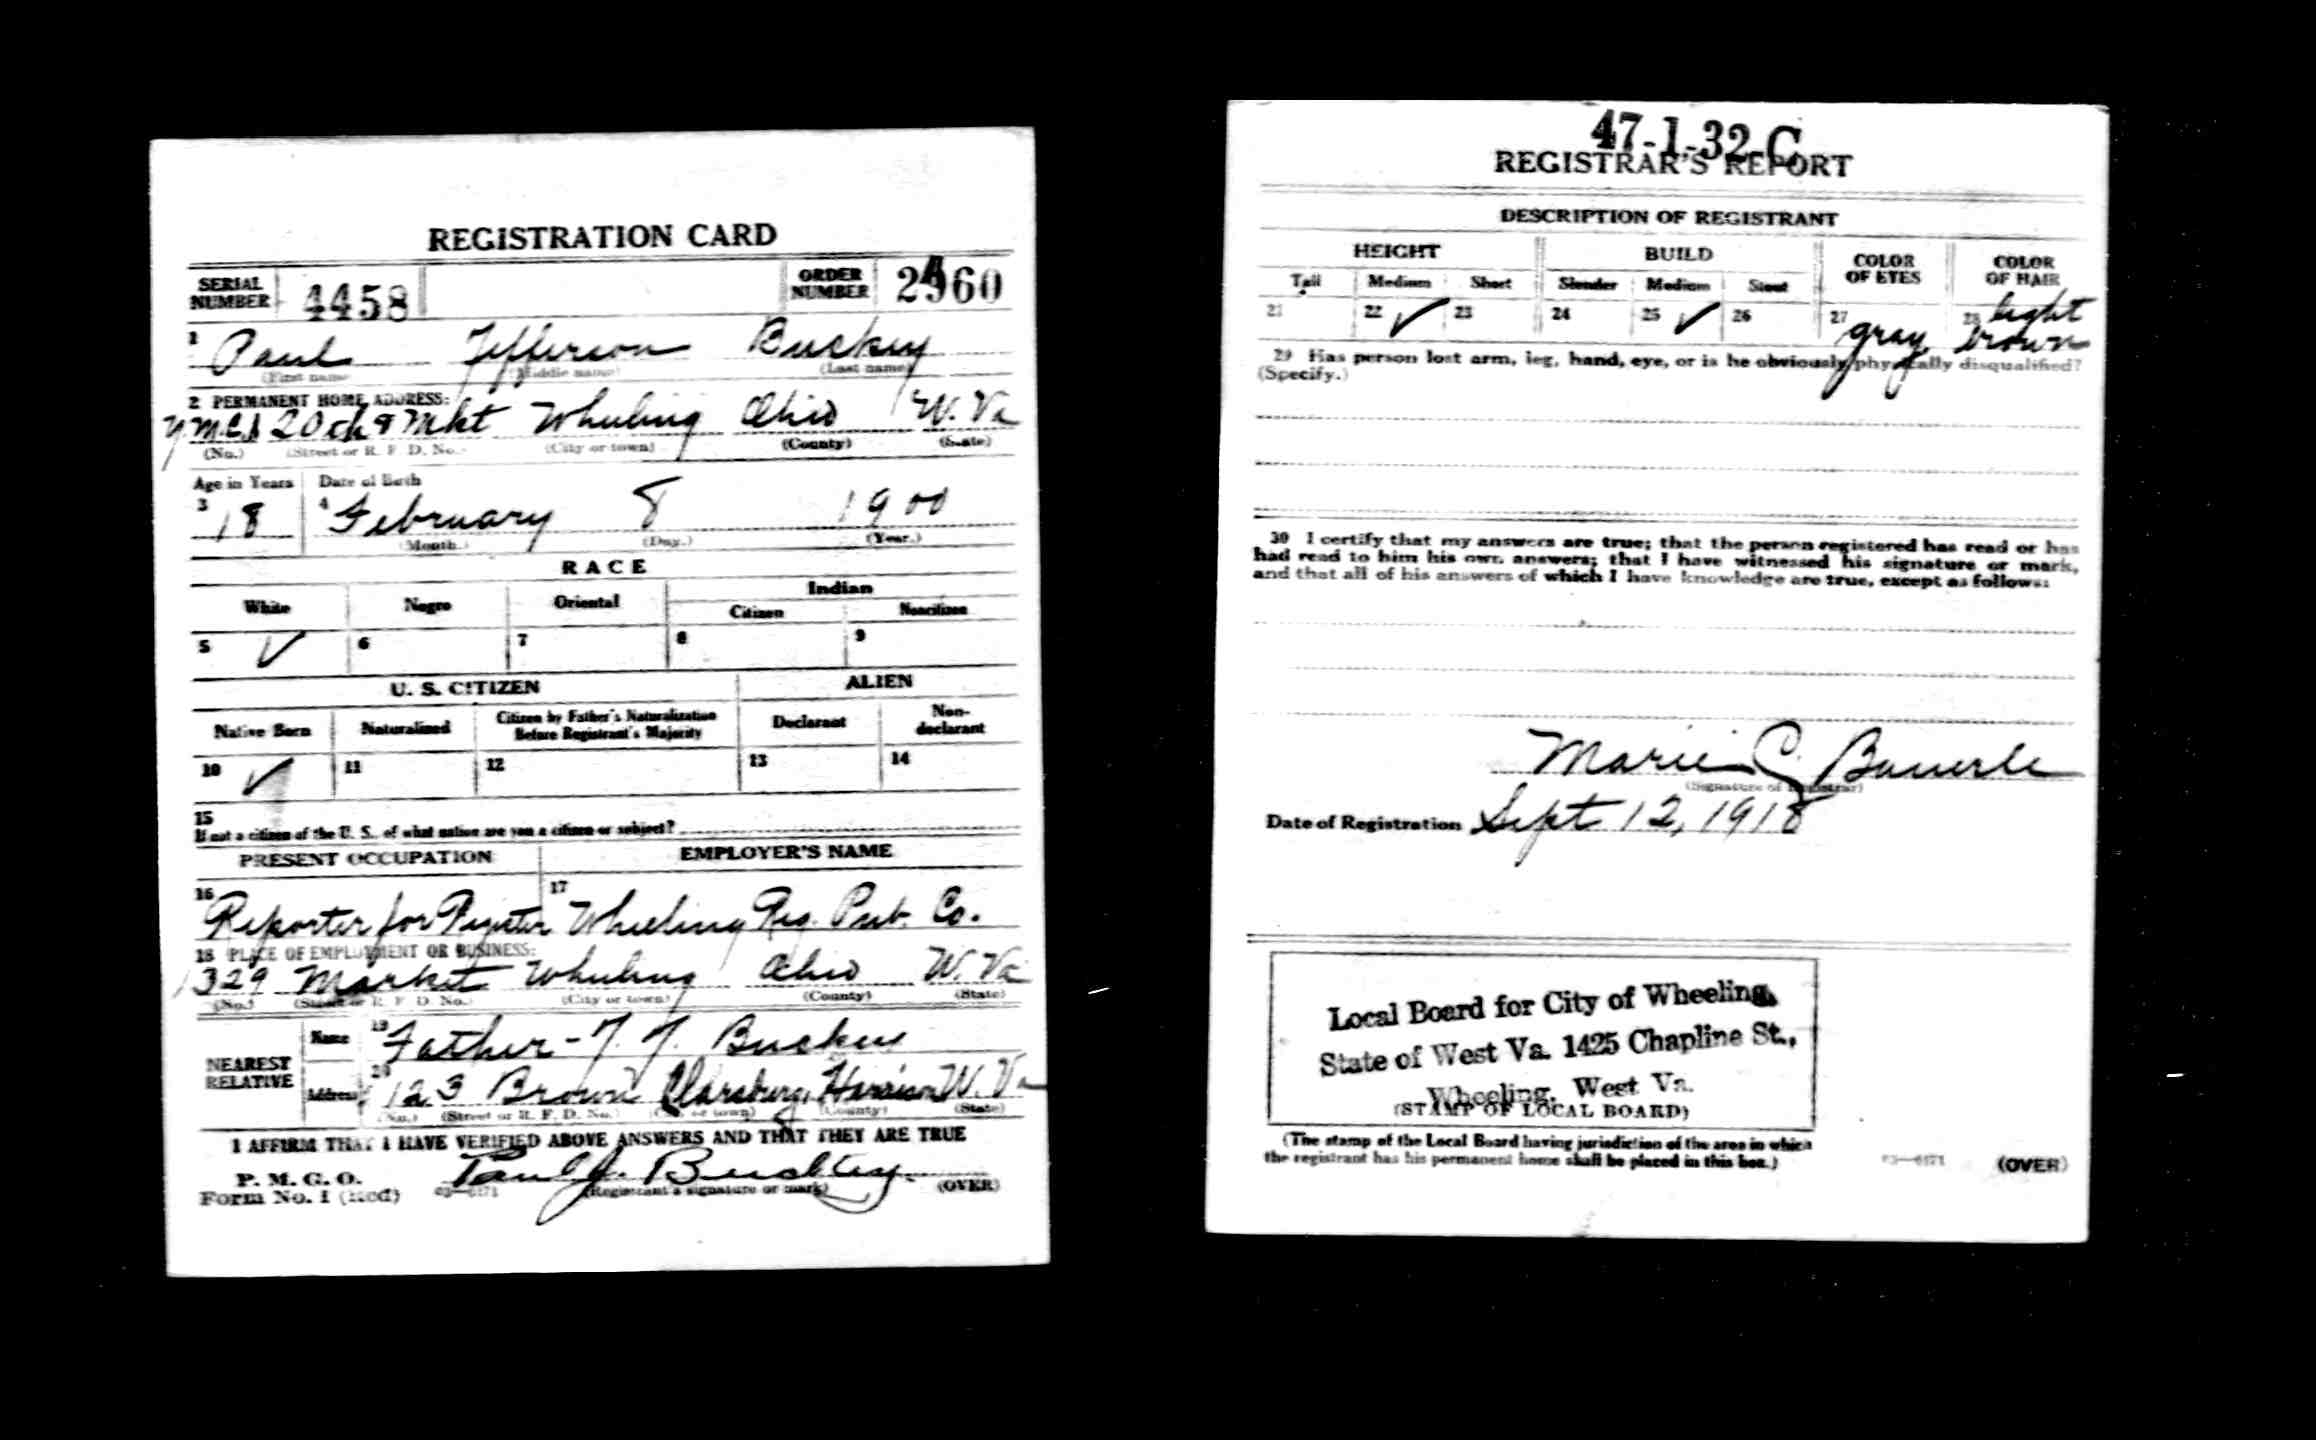 REGISTRATION CARD
SERIAL NUMBER 4458 ORDER NUMBER 2460
1 Paul Jefferson Buckey
(First name) (Middle name) (Last name)
2 PERMANENT HOME ADDRESS:
YMCA 20th & Mkt Wheeling Ohio W. Va
(No.) (Street or R. F. D. No.) (City or town) (County) (State)
Age in Years Date of Birth
3 18 4 February 8 1900
(Month.) (Day.) (Year.)
RACE
White Negro Oriental Indian
Citizen Noncitizen
5 ✓ 6 7 8 9
U. S. CITIZEN ALIEN
Native Born Naturalized Citizen by Father's Naturalization Before Registrant's Majority Declarant Non-declarant
10 ✓ 11 12 13 14
15
If not a citizen of the U. S., of what nation are you a citizen or subject?
PRESENT OCCUPATION EMPLOYER'S NAME
16 Reporter for Register 17 Wheeling Reg. Pub. Co.
18 PLACE OF EMPLOYMENT OR BUSINESS:
1329 Market Wheeling Ohio W. Va
(No.) (Street or R. F. D. No.) (City or town) (County) (State)
NEAREST RELATIVE Name 19 Father - T. J. Buckey
Address 20 123 Brown Clarsburg, Harrison W. Va
(No.) (Street or R. F. D. No.) (City or town) (County) (State)
I AFFIRM THAT I HAVE VERIFIED ABOVE ANSWERS AND THAT THEY ARE TRUE
P. M. G. O.
Form No. 1 (Red) 03—6171 Paul J. Buckey (Registrant's signature or mark) (OVER)
47-1-32-C
REGISTRAR'S REPORT
DESCRIPTION OF REGISTRANT
HEIGHT BUILD COLOR OF EYES COLOR OF HAIR
Tall Medium Short Slender Medium Stout
21 22 ✓ 23 24 25 ✓ 26 27 gray 28 light brown
29 Has person lost arm, leg, hand, eye, or is he obviously physically disqualified?
(Specify.)
30 I certify that my answers are true; that the person registered has read or has
had read to him his own answers; that I have witnessed his signature or mark,
and that all of his answers of which I have knowledge are true, except as follows:
Marie C. Bauerle
(Signature of Registrar)
Date of Registration Sept 12, 1918
Local Board for City of Wheeling,
State of West Va. 1425 Chapline St.,
Wheeling, West Va.
(STAMP OF LOCAL BOARD)
(The stamp of the Local Board having jurisdiction of the area in which
the registrant has his permanent home shall be placed in this box.)
03—6171 (OVER)